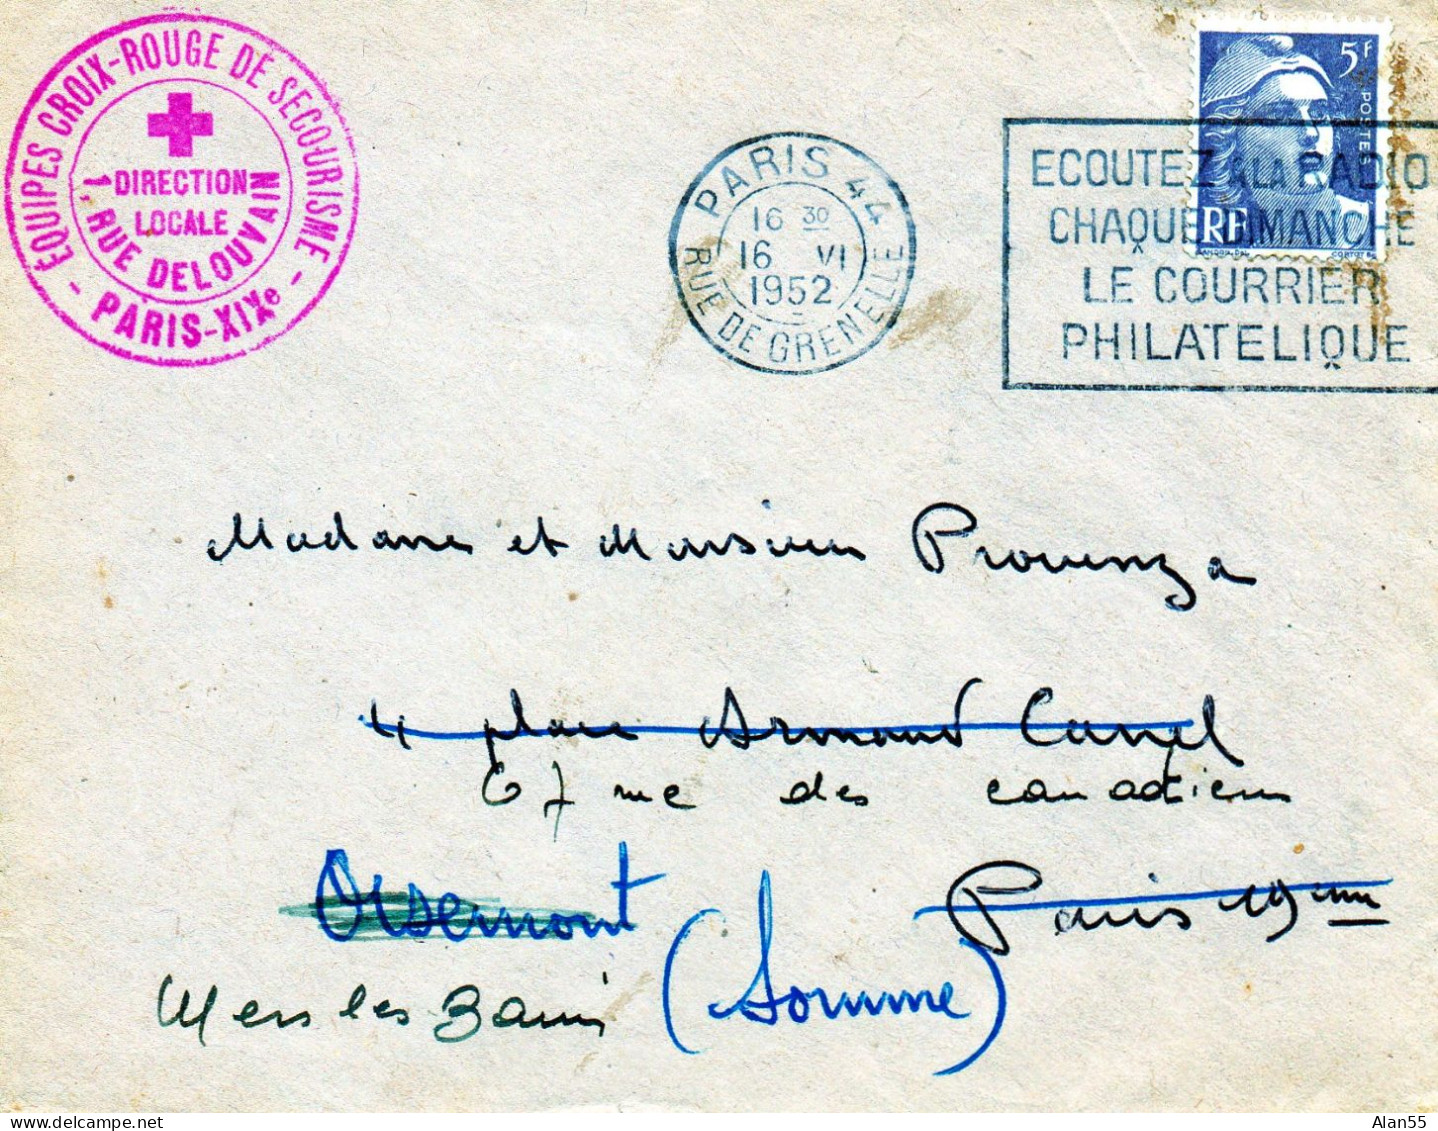 ÉQUIPES CROIX-ROUGE DE SECOURISME
DIRECTION
LOCALE
1, RUE DELOUVAIN
- PARIS-XIXe -
PARIS 44
16 30
16 VI
1952
RUE DE GRENELLE
5F
POSTES
RF
GANDON DEL.
CORTOT SC.
ECOUTEZ A LA RADIO
CHAQUE DIMANCHE
LE COURRIER
PHILATELIQUE
Madame et Monsieur Provenza
4 place Armand Carrel
67 rue des canadiens
Oisemont
Paris 19eme
Mers les Bains
(Somme)
Alan55